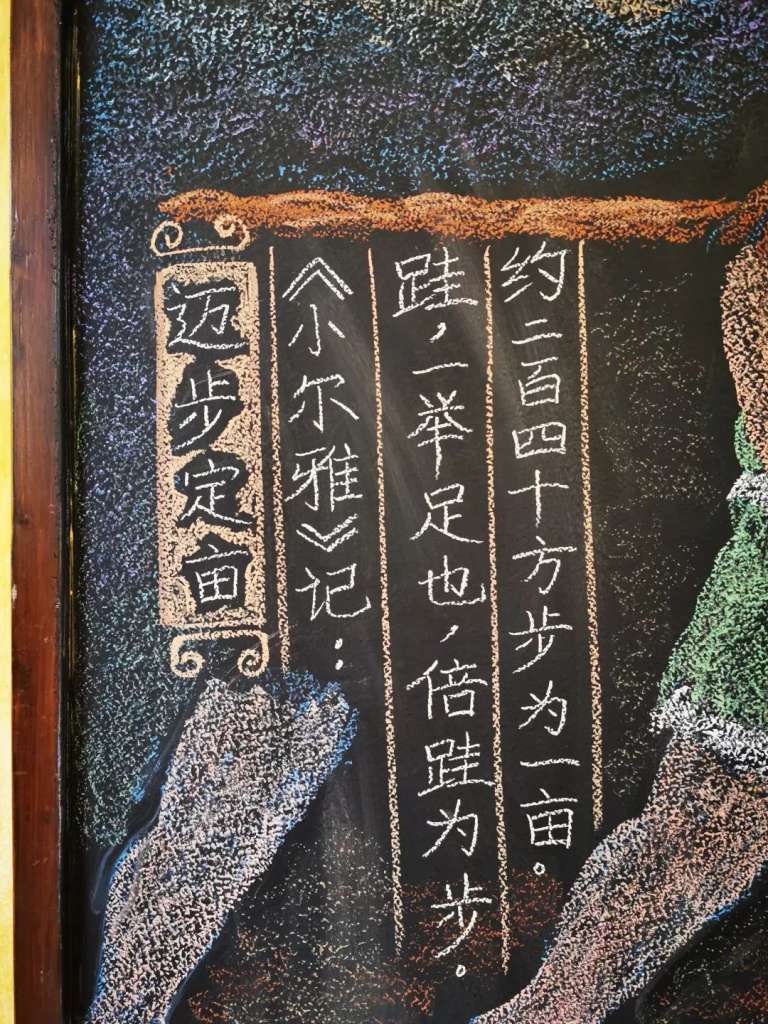 迈步定亩
《小尔雅》记：
跬，一举足也，倍跬为步。
约二百四十方步为一亩。